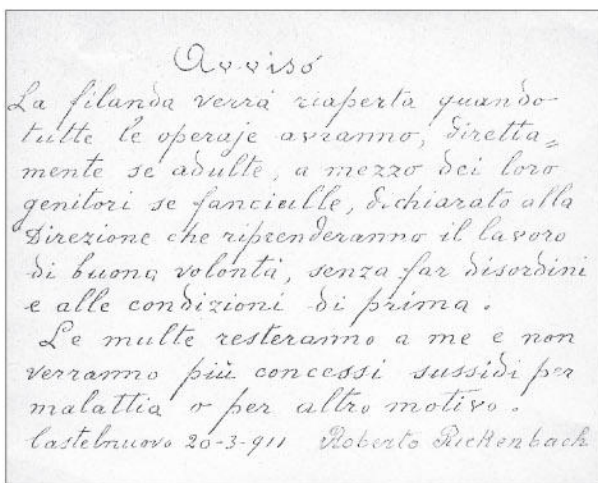 Avviso
La filanda verrà riaperta quando
tutte le operaje avranno, diretta=
mente se adulte, a mezzo dei loro
genitori se fanciulle, dichiarato alla
Direzione che riprenderanno il lavoro
di buona volontà, senza far disordini
e alle condizioni di prima.
Le multe resteranno a me e non
verranno più concessi sussidi per
malattia o per altro motivo.
Castelnuovo 20-3-911 Roberto Rickenbach